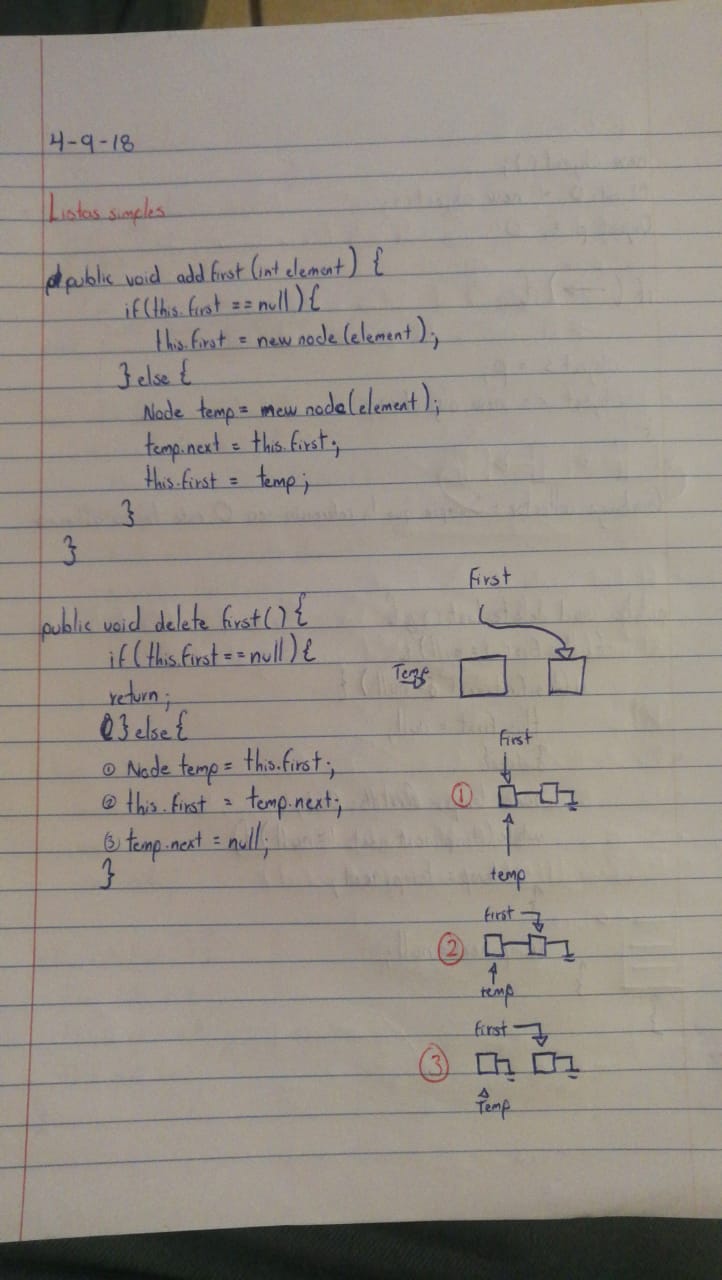 4-9-18
Listas simples
public void add first (int element) {
if (this.first == null) {
this.first = new node (element);
} else {
Node temp = new node (element);
temp.next = this.first;
this.first = temp;
}
}
public void delete first () {
if (this.first == null) {
return;
} else {
① Node temp = this.first;
② this.first = temp.next;
③ temp.next = null;
}
First
Temp
First
①
temp
First
②
temp
First
③
Temp